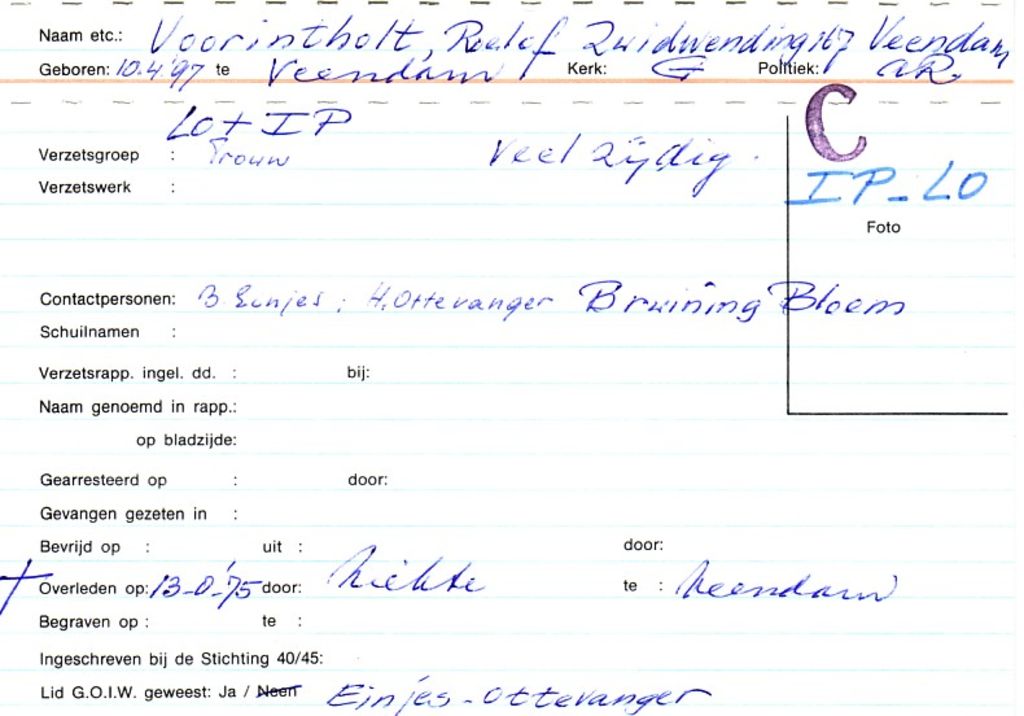 Naam etc.: Voorintholt, Roelof Zuidwending 167 Veendam
Geboren: 10.4.'97 te Veendam Kerk: G Politiek: a.R.
LO + IP
C
Verzetsgroep : Trouw Veelzijdig.
Verzetswerk :
IP-LO
Foto
Contactpersonen: B. Eenjes; H. Ottevanger Bruining Bloem
Schuilnamen :
Verzetsrapp. ingel. dd. : bij:
Naam genoemd in rapp.:
op bladzijde:
Gearresteerd op : door:
Gevangen gezeten in :
Bevrijd op : uit : door:
† Overleden op: 13-0-'75 door: Ziekte te : Veendam
Begraven op : te :
Ingeschreven bij de Stichting 40/45:
Lid G.O.I.W. geweest: Ja / Neen Einjes-Ottevanger